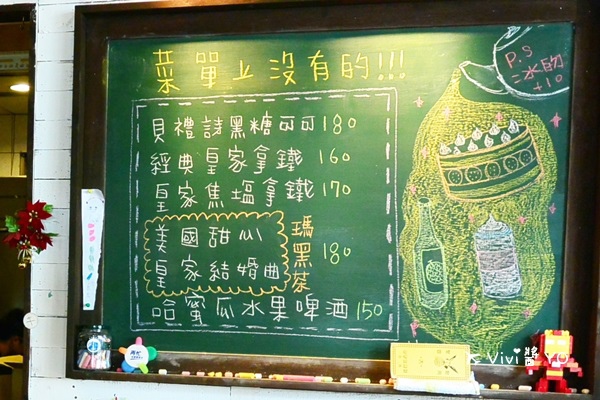 菜單上沒有的!!!
P.S
冰的
+10
貝禮詩黑糖可可180
經典皇家拿鐵 160
皇家焦塩拿鐵170
美國甜心
皇家結婚曲
瑪黑茶
180
哈蜜瓜水果啤酒150
Vivi醬